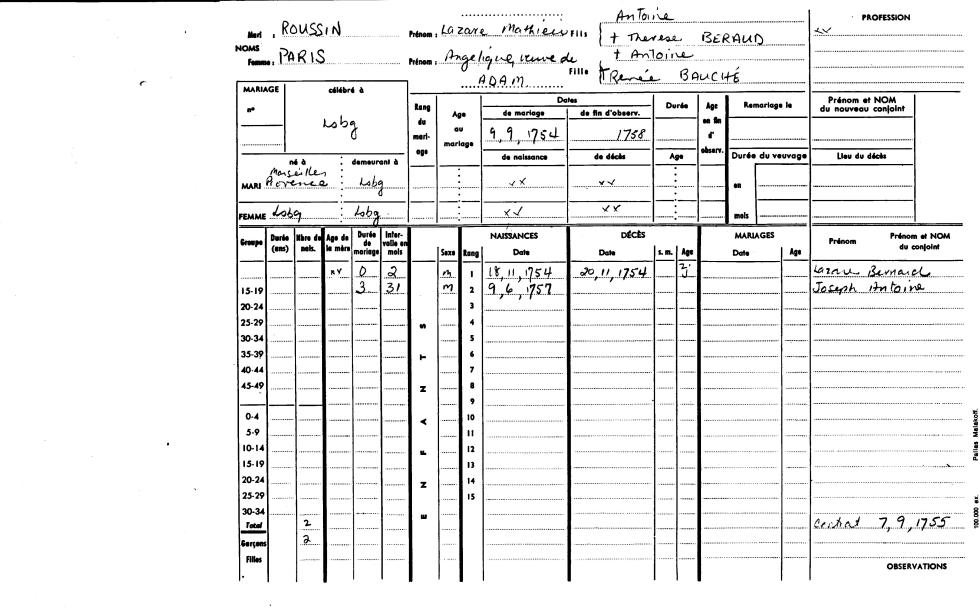 Antoine
PROFESSION
Mari : ROUSSIN Prénom : Lazare Mathieu Fils + Therese BERAUD xx
NOMS + Antoine
Femme : PARIS Prénom : Angelique, veuve de ADAM. Fille + Renée BAUCHÉ
MARIAGE célébré à Rang du mariage Age au mariage Dates Durée Age en fin d'observ. Remariage le Prénom et NOM du nouveau conjoint
n° Lsbg de mariage de fin d'observ.
9, 9, 1754 1758
né à demeurant à de naissance de décès Age Durée du veuvage Lieu du décès
MARI Marseilles Provence Lsbg xx xx en
FEMME Lsbg Lsbg xx xx mois
Groupe Durée (ans) Nbre de nais. Age de la mère Durée de mariage Intervalle en mois ENFANTS Sexe Rang NAISSANCES Date DÉCÈS Date s. m. Age MARIAGES Date Age Prénom Prénom et NOM du conjoint
xx 0 2 m 1 18, 11, 1754 20, 11, 1754 2j Lazare Bernard
15-19 3 31 m 2 9, 6, 1757 Joseph Antoine
20-24 3
25-29 4
30-34 5
35-39 6
40-44 7
45-49 8
9
0-4 10
5-9 11
10-14 12
15-19 13
20-24 14
25-29 15
30-34
Total 2 Contrat 7, 9, 1755
Garçons 2
Filles
OBSERVATIONS
100.000 ex. Pailles Malakoff.